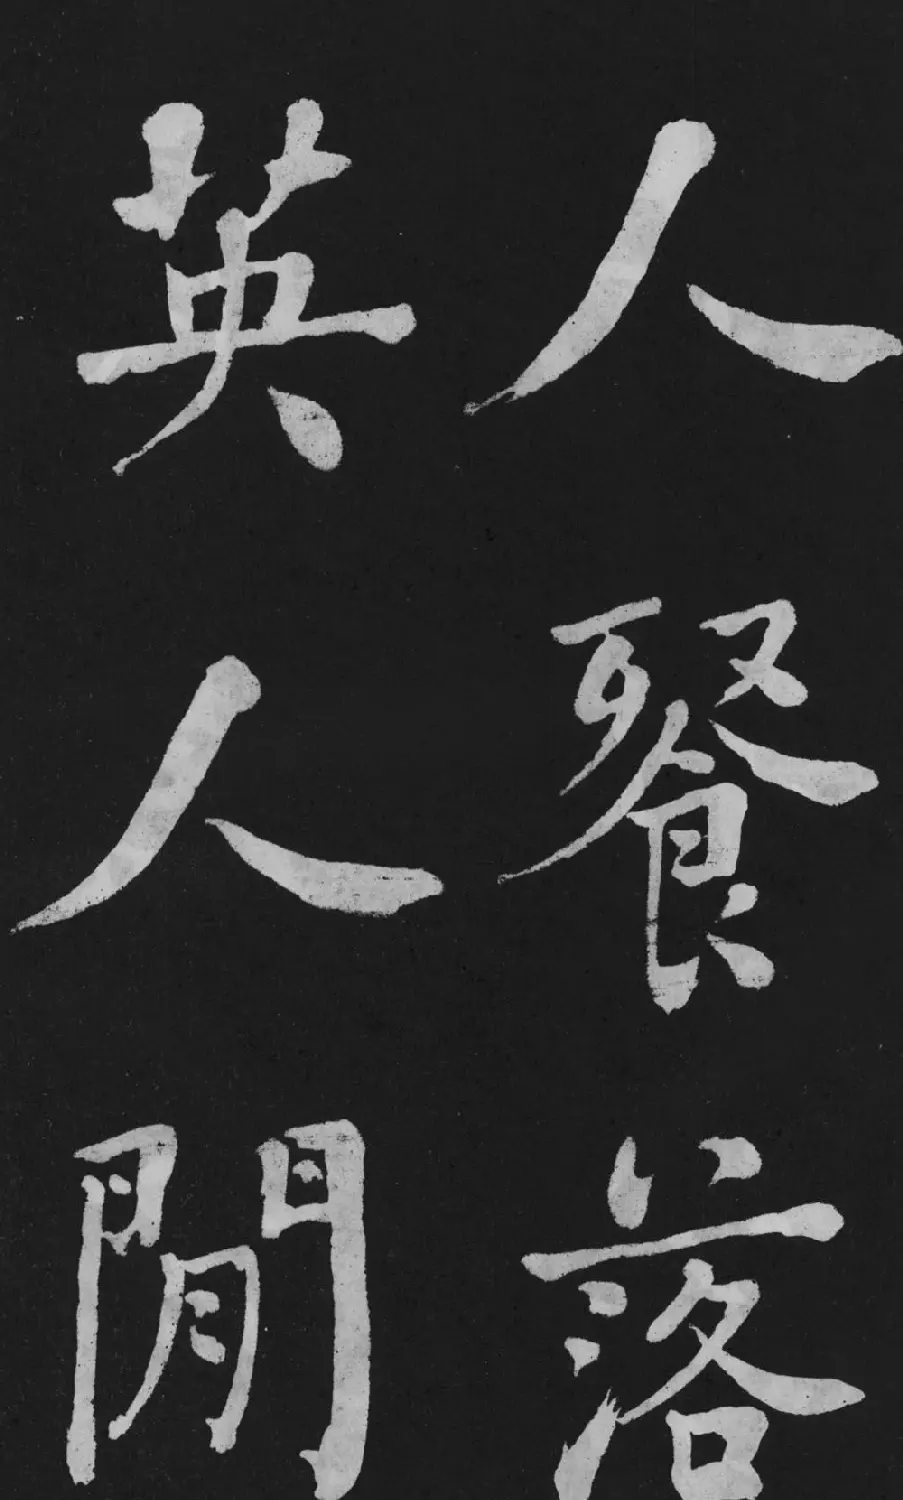 人餐落
英人閒